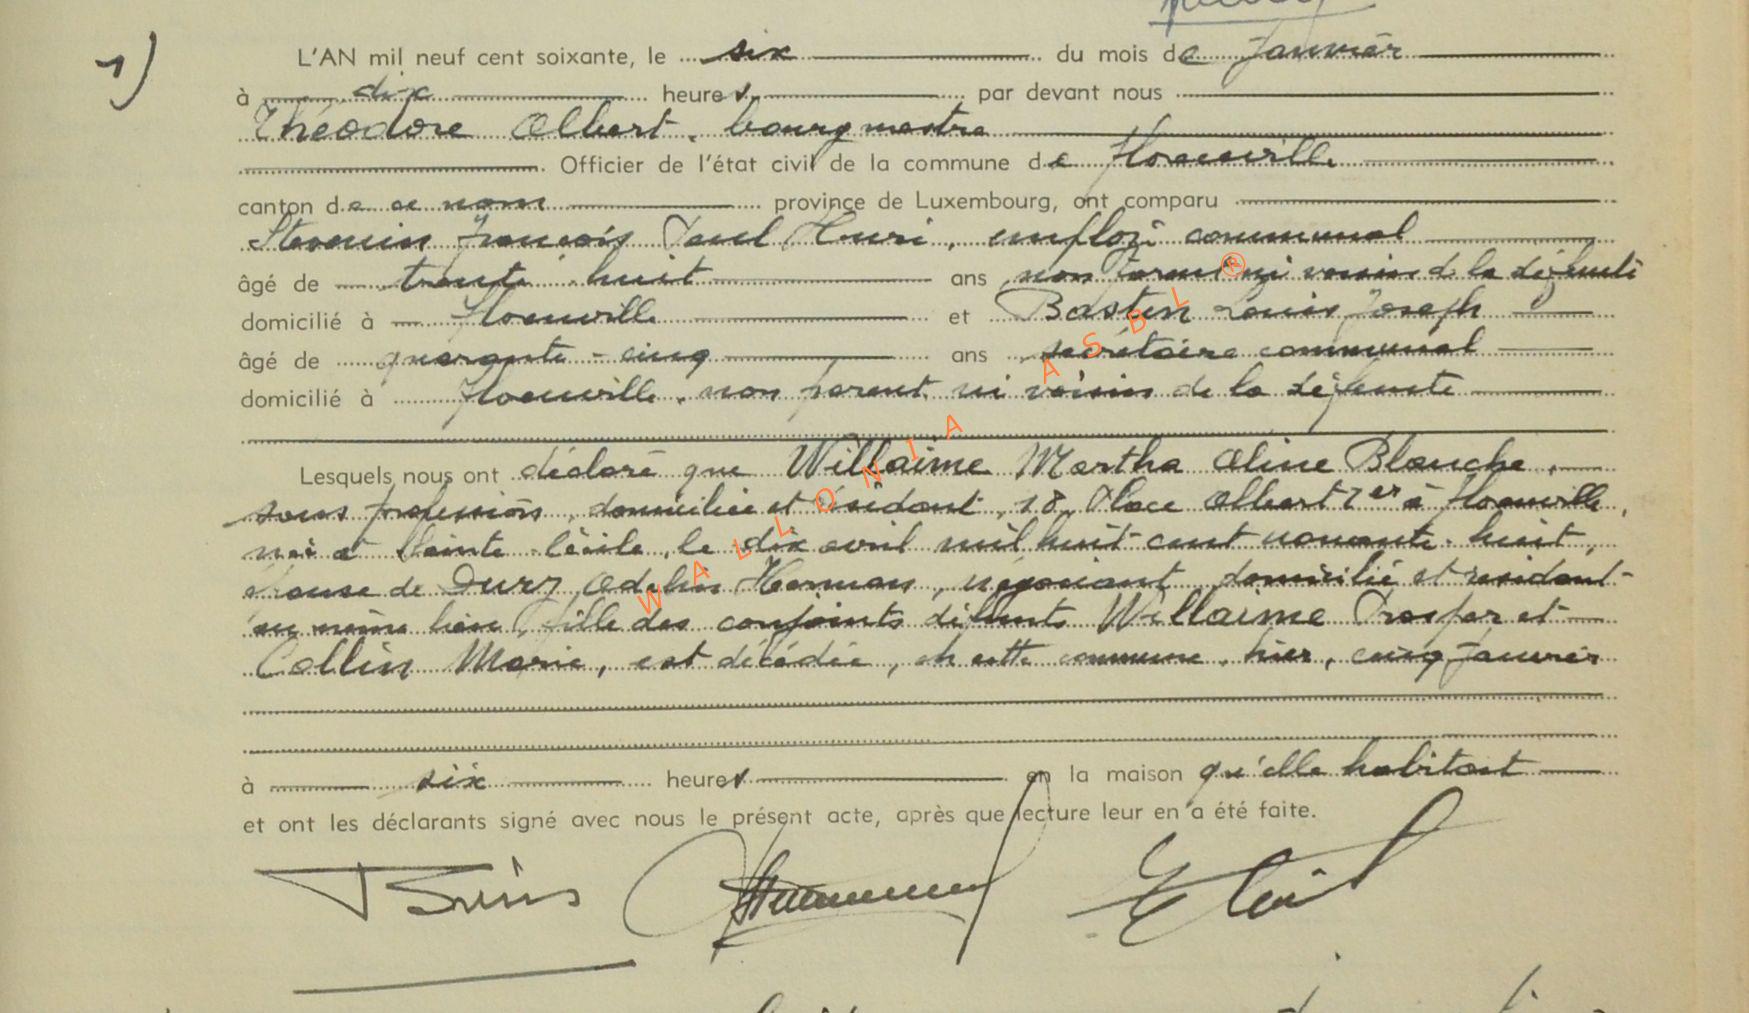 1)
L'AN mil neuf cent soixante, le six du mois de Janvier
à dix heures par devant nous
Théodore Albert, bourgmestre
Officier de l'état civil de la commune de Florenville
canton de ce nom province de Luxembourg, ont comparu
François Paul Henri, employé communal
âgé de trente huit ans non parent ni voisin de la défunte
domicilié à Florenville et Bastin Louis Joseph
âgé de quarante-cinq ans secrétaire communal
domicilié à Florenville, non parent ni voisin de la défunte
Lesquels nous ont déclaré que Willaime Martha Aline Blanche,
sans profession, domiciliée et résidant, 18, Place Albert 1er à Florenville,
née à Sainte Cécile, le dix avril mil huit cent nonante huit,
épouse de Dury Odelin Herman, négociant, domicilié et résidant
au même lieu, fille des conjoints défunts Willaime Prosper et
Collin Marie, est décédée, en cette commune, hier, cinq Janvier
à six heures en la maison qu'elle habitait
et ont les déclarants signé avec nous le présent acte, après que lecture leur en a été faite.
WALLONIA ASBL ®